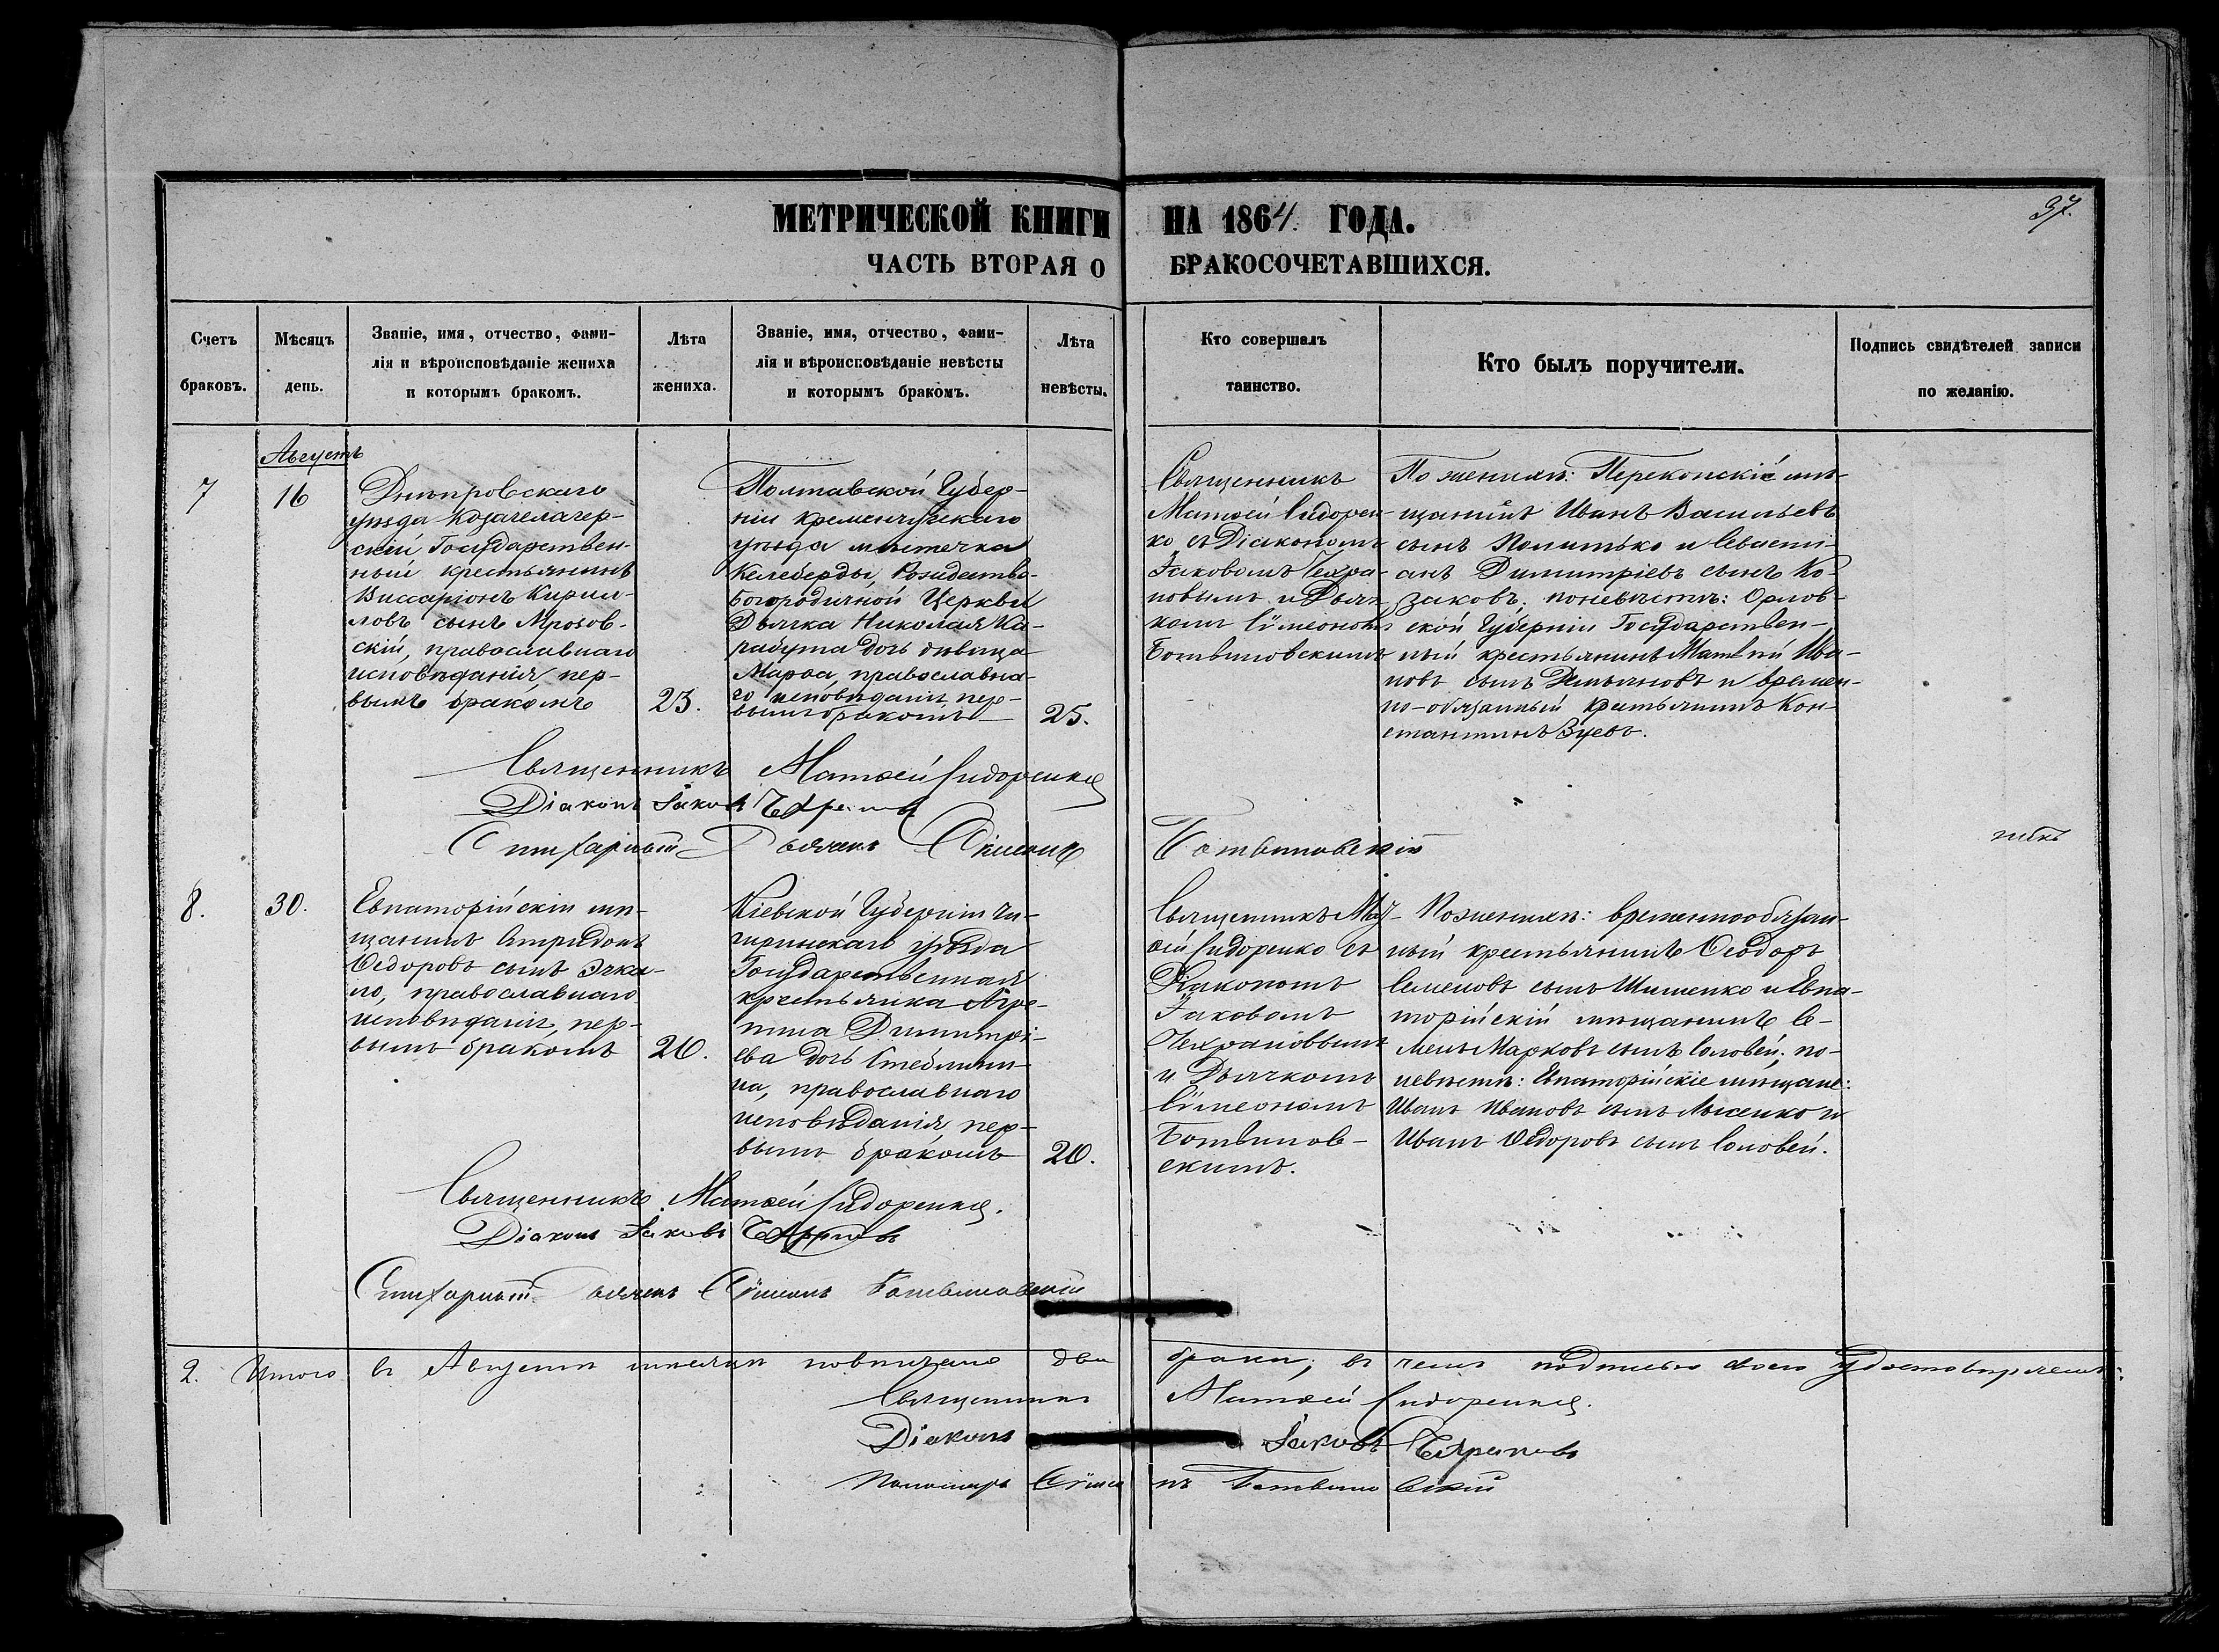 37.
МЕТРИЧЕСКОЙ КНИГИ НА 1864 ГОДА.
ЧАСТЬ ВТОРАЯ О БРАКОСОЧЕТАВШИХСЯ.
Счетъ браковъ.
Мѣсяцъ день.
Званіе, имя, отчество, фами-
лія и вѣроисповѣданіе жениха
и которымъ бракомъ.
Лѣта
жениха.
Званіе, имя, отчество, фами-
лія и вѣроисповѣданіе невѣсты
и которымъ бракомъ.
Лѣта
невѣсты.
Кто совершалъ
таинство.
Кто былъ поручители.
Подпись свидѣтелей записи
по желанію.
Августъ
7
16
Днѣпровскаго
уѣзда Козачелагер-
скій Государствен-
ный крестьянинъ
Виссаріонъ Кирил-
ловъ сынъ Мрозов-
скій, православнаго
исповѣданія, пер-
вымъ бракомъ
23.
Полтавской Губер-
ніи Кременчугскаго
уѣзда мѣстечка
Келеберды, Рождество-
Богородичной Церкви
Дьячка Николая Ка-
рабута дочь дѣвица
Марѳа, православна-
го исповѣданія, пер-
вымъ бракомъ
25.
Священникъ
Матѳей Сидорен-
ко съ Діакономъ
Іаковомъ Чехра-
новымъ и Дьяч-
комъ Сѵмеономъ
Ботвиновскимъ
По женихѣ: Перекопскіе мѣ-
щанинъ Иванъ Васильевъ
сынъ Политько и Севасті-
анъ Димитріевъ сынъ Ко-
заковъ; по невѣстѣ: Орлов-
ской Губерніи Государствен-
ный крестьянинъ Матвѣй Ива-
новъ сынъ Демьяновъ и времен-
но-обязанный крестьянинъ Кон-
стантинъ Зуевъ.
Священникъ Матѳей Сидоренко
Діаконъ Іаковъ Чехрановъ
Стихарный Дьячекъ Сѵмеонъ Ботвиновскій
8.
30.
Евпаторійскій мѣ-
щанинъ Спиридонъ
Ѳедоровъ сынъ Очка-
ло, православнаго
исповѣданія, пер-
вымъ бракомъ
20.
Кіевской Губерніи Чи-
гиринскаго уѣзда
Государственная
крестьянка Агре-
пина Димитрі-
ева дочь Стеблини-
на, православнаго
исповѣданія, пер-
вымъ бракомъ
20.
Священникъ Мат-
ѳей Сидоренко съ
Діакономъ
Іаковомъ
Чехрановымъ
и Дьячкомъ
Сѵмеономъ
Ботвинов-
скимъ.
По женихѣ: временнообязан-
ный крестьянинъ Ѳеодоръ
Семеновъ сынъ Шишенко и Евпа-
торійскій мѣщанинъ Се-
менъ Марковъ сынъ Соловей; по
невѣстѣ: Евпаторійскіе мѣщане:
Иванъ Ивановъ сынъ Лысенко и
Иванъ Ѳедоровъ сынъ Соловей.
Священникъ Матѳей Сидоренко.
Діаконъ Іаковъ Чехрановъ
Стихарный Дьячекъ Сѵмеонъ Ботвиновскій
2. Итого въ Августѣ мѣсяцѣ повѣнчано два брака; въ чемъ подписью своею удостовѣряемъ:
Священникъ Матѳей Сидоренко.
Діаконъ Іаковъ Чехрановъ
Пономарь Сѵмеонъ Ботвиновскій